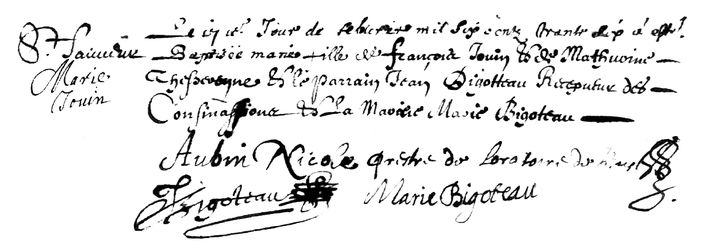 St Sauveur
Marie
Jouin
Le jour de febvrier mil six centz trante six a esté
Baptisée marie fille de françois Jouin & de Mathurine
Thesvenyne & le parrain Jean Bigotteau Recepveur des
Consinations & La Marine Marie Bigoteau
Aubin Nicole prestre de loratoire de
Bigoteau Marie Bigoteau